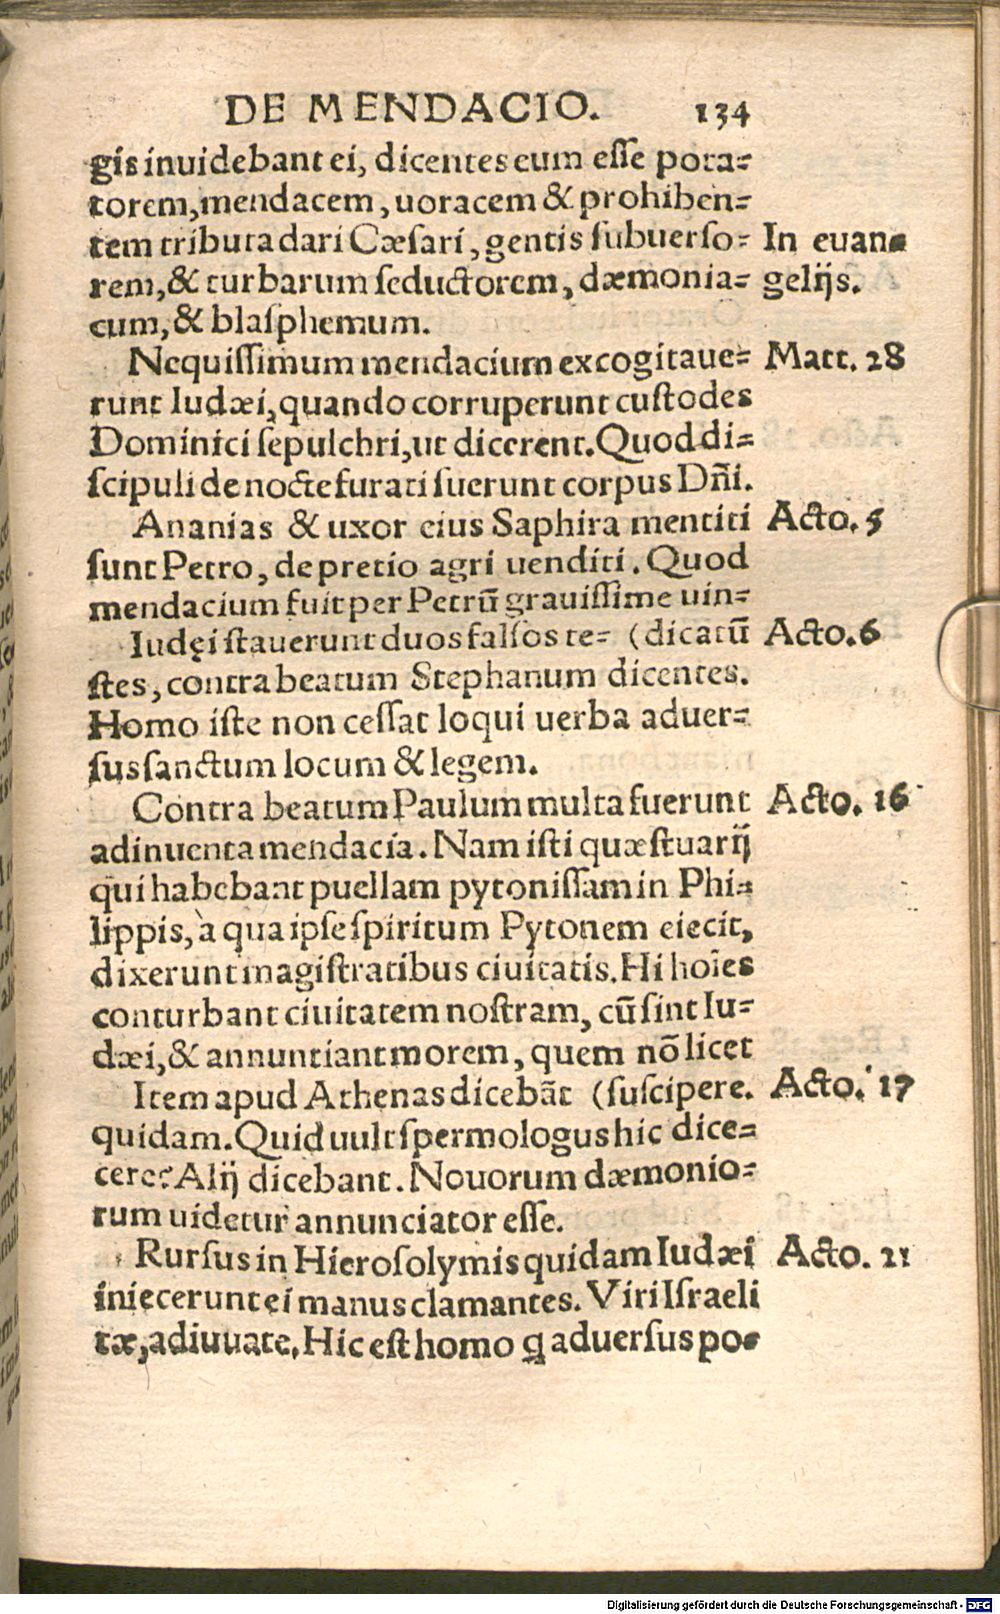 DE MENDACIO. 134
gis inuidebant ei, dicentes eum esse pota-
torem, mendacem, uoracem & prohiben-
tem tributa dari Cæsari, gentis subuerso- In euan-
rem, & turbarum seductorem, dæmonia- gelijs.
cum, & blasphemum.
Nequissimum mendacium excogitaue- Matt. 28
runt Iudæi, quando corruperunt custodes
Dominici sepulchri, ut dicerent. Quod di-
scipuli de nocte furati fuerunt corpus Dñi.
Ananias & uxor eius Saphira mentiti Acto. 5
sunt Petro, de pretio agri uenditi. Quod
mendacium fuit per Petrū grauissime uin-
Iudęi stauerunt duos falsos te- (dicatū Acto. 6
stes, contra beatum Stephanum dicentes.
Homo iste non cessat loqui uerba aduer-
sus sanctum locum & legem.
Contra beatum Paulum multa fuerunt Acto. 16
adinuenta mendacia. Nam isti quæstuarij
qui habebant puellam pytonissam in Phi-
lippis, à qua ipse spiritum Pytonem eiecit,
dixerunt magistratibus ciuitatis. Hi hoīes
conturbant ciuitatem nostram, cū sint Iu-
dæi, & annuntiant morem, quem nō licet
Item apud Athenas dicebāt (suscipere. Acto. 17
quidam. Quid uult spermologus hic dice-
cere? Alij dicebant. Nouorum dæmonio-
rum uidetur annunciator esse.
Rursus in Hierosolymis quidam Iudæi Acto. 21
iniecerunt ei manus clamantes. Viri Israeli
tæ, adiuuate. Hic est homo q aduersus po-
Digitalisierung gefördert durch die Deutsche Forschungsgemeinschaft - DFG